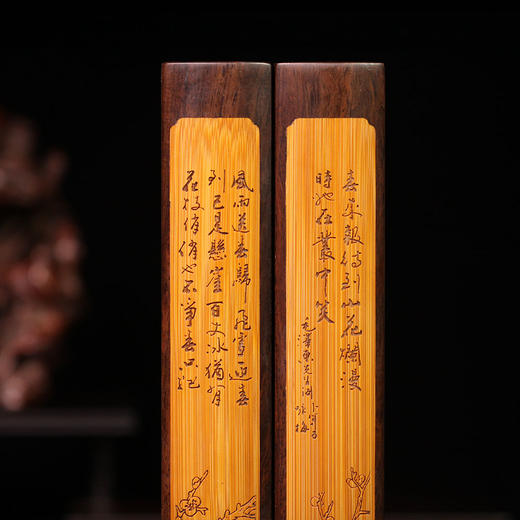 風雨送春歸飛雪迎春
到已是懸崖百丈冰猶有
花枝俏俏也不爭春只把
春來報待到山花爛漫
時她在叢中笑
毛澤東先生詞
卜算子
詠梅